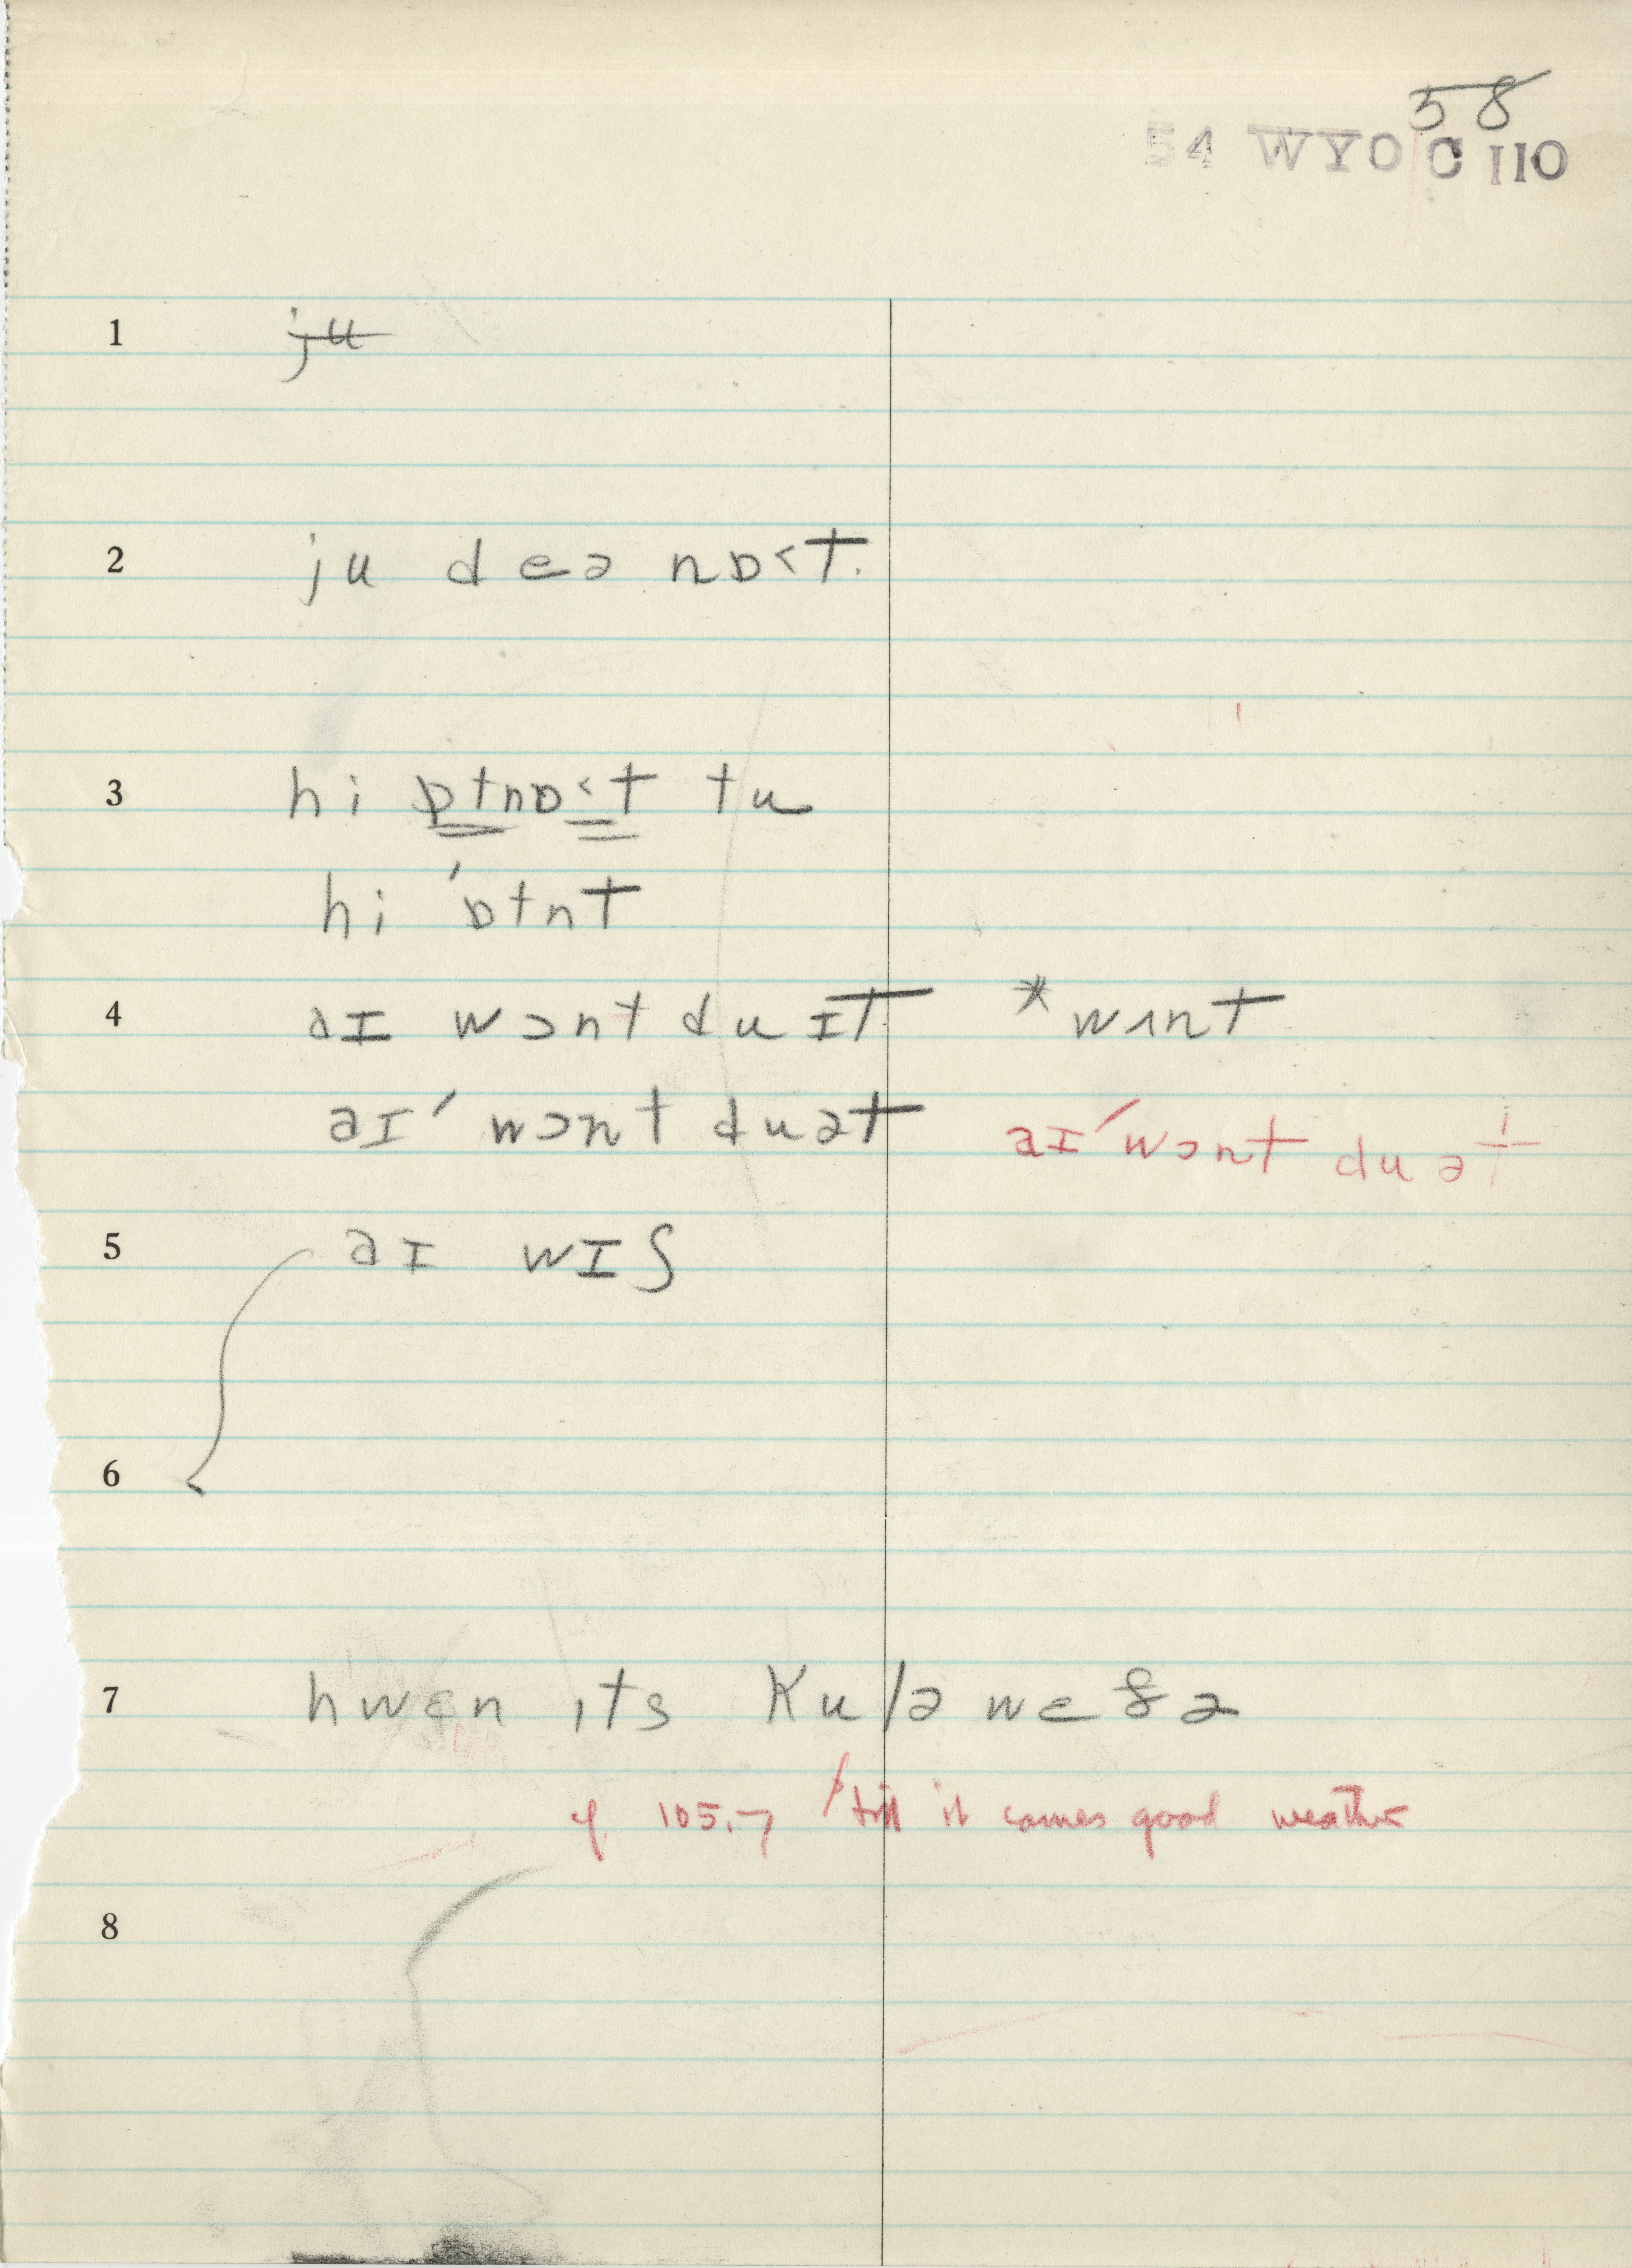 58
54 WYO C 110
1 ju
2 ju deə nɒ<t.
3 hi ɒtnɒ<t tu
hi 'ɒtnt
4 aɪ wɔnt du ɪt *wʌnt
aɪ' wɔnt duət aɪ' wɔnt du ət
5 aɪ wɪʃ
6
7 hwɛn ɪts kulə weðə
cf. 105.7 / till it comes good weather
8